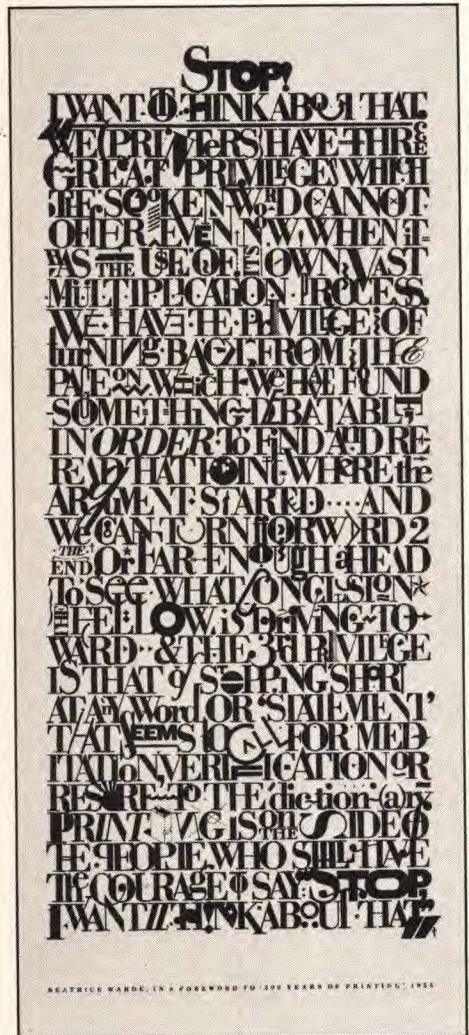 STOP!
I WANT TO THINK ABOUT THAT.
"WE (PRINTERS) HAVE THREE
GREAT PRIVILEGES WHICH
THE SPOKEN WORD CANNOT
OFFER EVEN NOW WHEN iT
HAS THE USE OF ITS OWN VAST
MULTIPLICATION PROCESS.
WE HAVE THE PRIVILEGE OF
turNiNg BACK FROM THE
PAGE ON WHich We HAVE FOUND
SOMETHiNG DEBATABLE
IN ORDER To FiND AND RE-
READ THAT POINT WHERE the
ARGUMENT StARTED....AND
We CAN TURN FORWARD 2
THE END Or FAR ENOUgh aHEAD
To See WHAT CONCLUSION
THE FELLOW iS DriViNG TO-
WARD & THE 3rd PRIVILEGE
IS THAT of STOPPiNG SHORT
AT ANY Word OR 'STATEMENT'
THAT SEEMS TO CALL FOR MED-
ITATIoN, VERIFICATION oR
RESORT TO THE dic-tion-(a)ry
PRINTING IS on THE SIDE OF
THE PEOPLE WHO STILL HAVE
The COURAGE TO SAY "STOP,
I WANT TO THINK ABOUT THAT"
BEATRICE WARDE, IN A FOREWORD TO '500 YEARS OF PRINTING', 1955